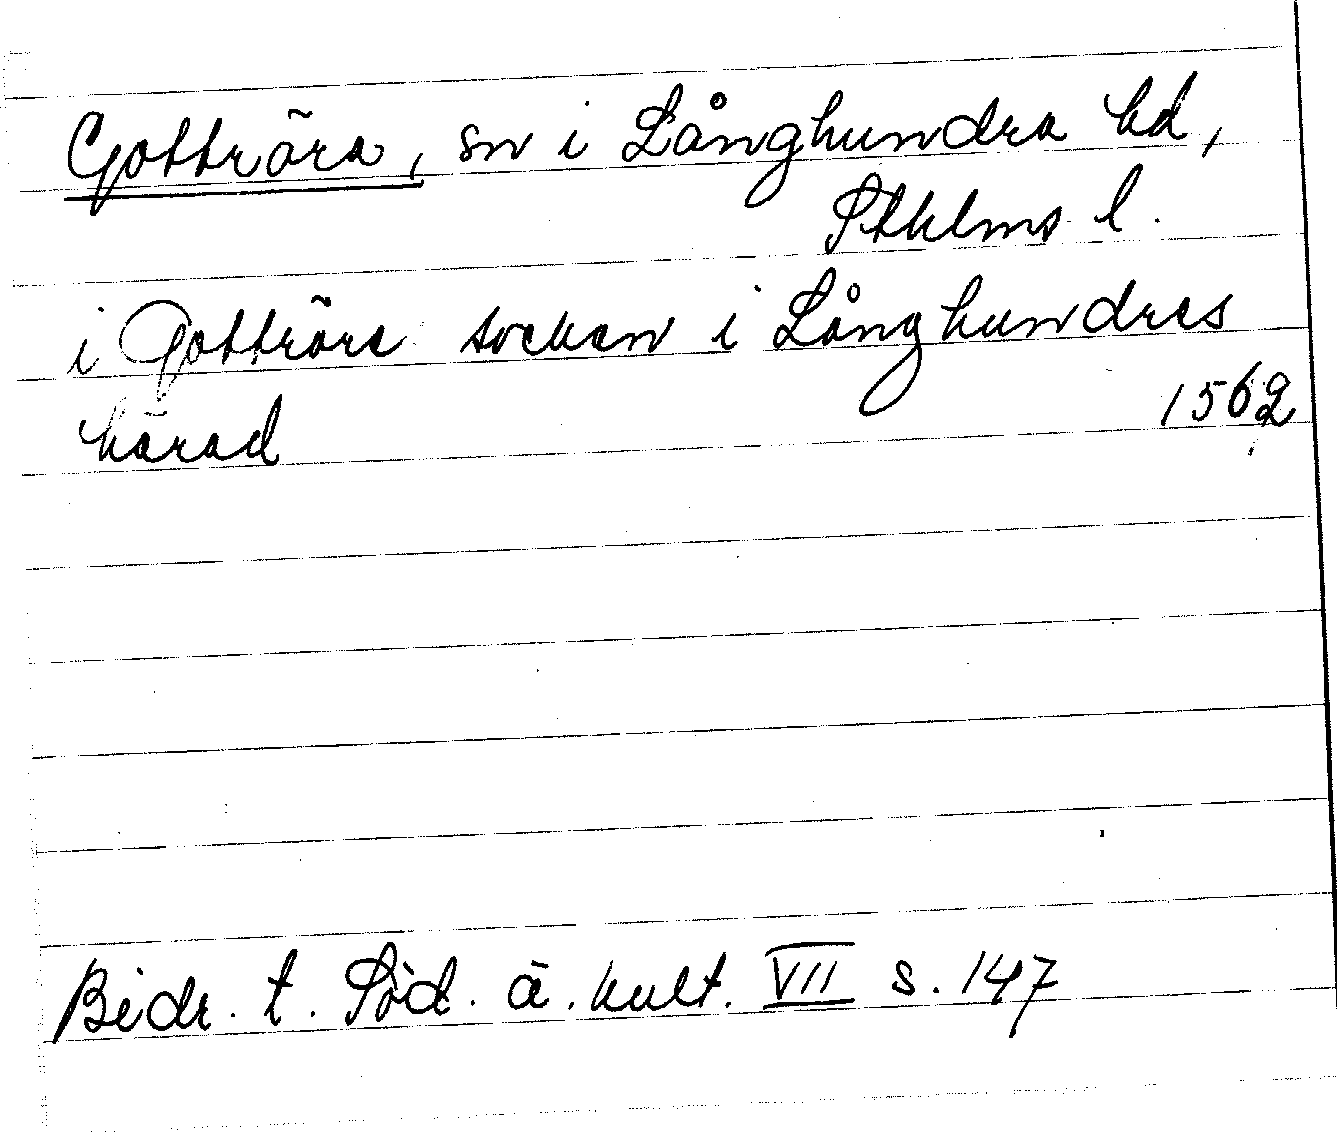 Gottröra, sn i Långhundra hd,
Sthlms l.
i Gottröra socken i Långhundras
härad 1562
Bidr. t. Söd. ä. kult. VII s. 147